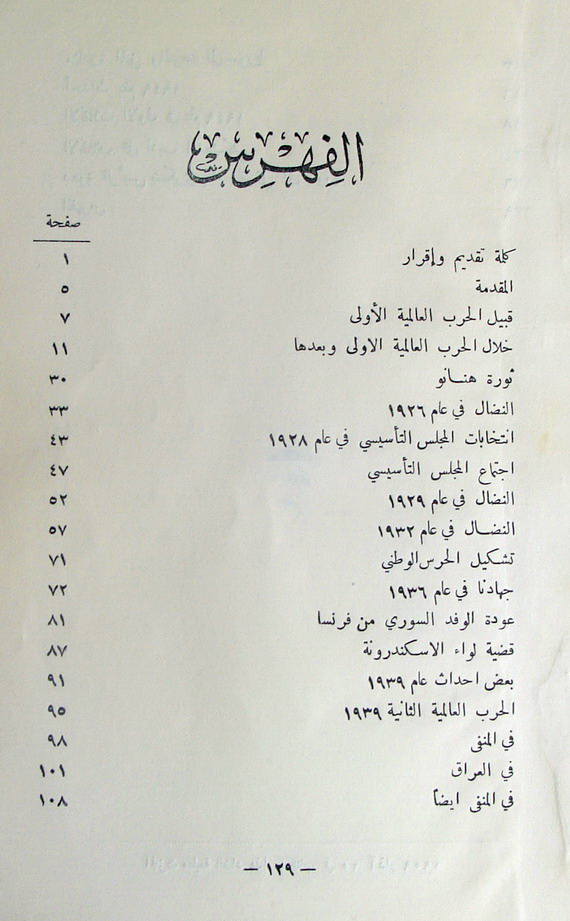 الفهرس
صفحة
كلمة تقديم وإقرار ١
المقدمة ٥
قبيل الحرب العالمية الأولى ٧
خلال الحرب العالمية الاولى وبعدها ١١
ثورة هنانو ٣٠
النضال في عام ١٩٢٦ ٣٣
انتخابات المجلس التأسيسي في عام ١٩٢٨ ٤٣
اجتماع المجلس التأسيسي ٤٧
النضال في عام ١٩٢٩ ٥٢
النضال في عام ١٩٣٢ ٥٧
تشكيل الحرس الوطني ٧١
جهادنا في عام ١٩٣٦ ٧٢
عودة الوفد السوري من فرنسا ٨١
قضية لواء الاسكندرونة ٨٧
بعض احداث عام ١٩٣٩ ٩١
الحرب العالمية الثانية ١٩٣٩ ٩٥
في المنفى ٩٨
في العراق ١٠١
في المنفى ايضاً ١٠٨
— ١٢٩ —